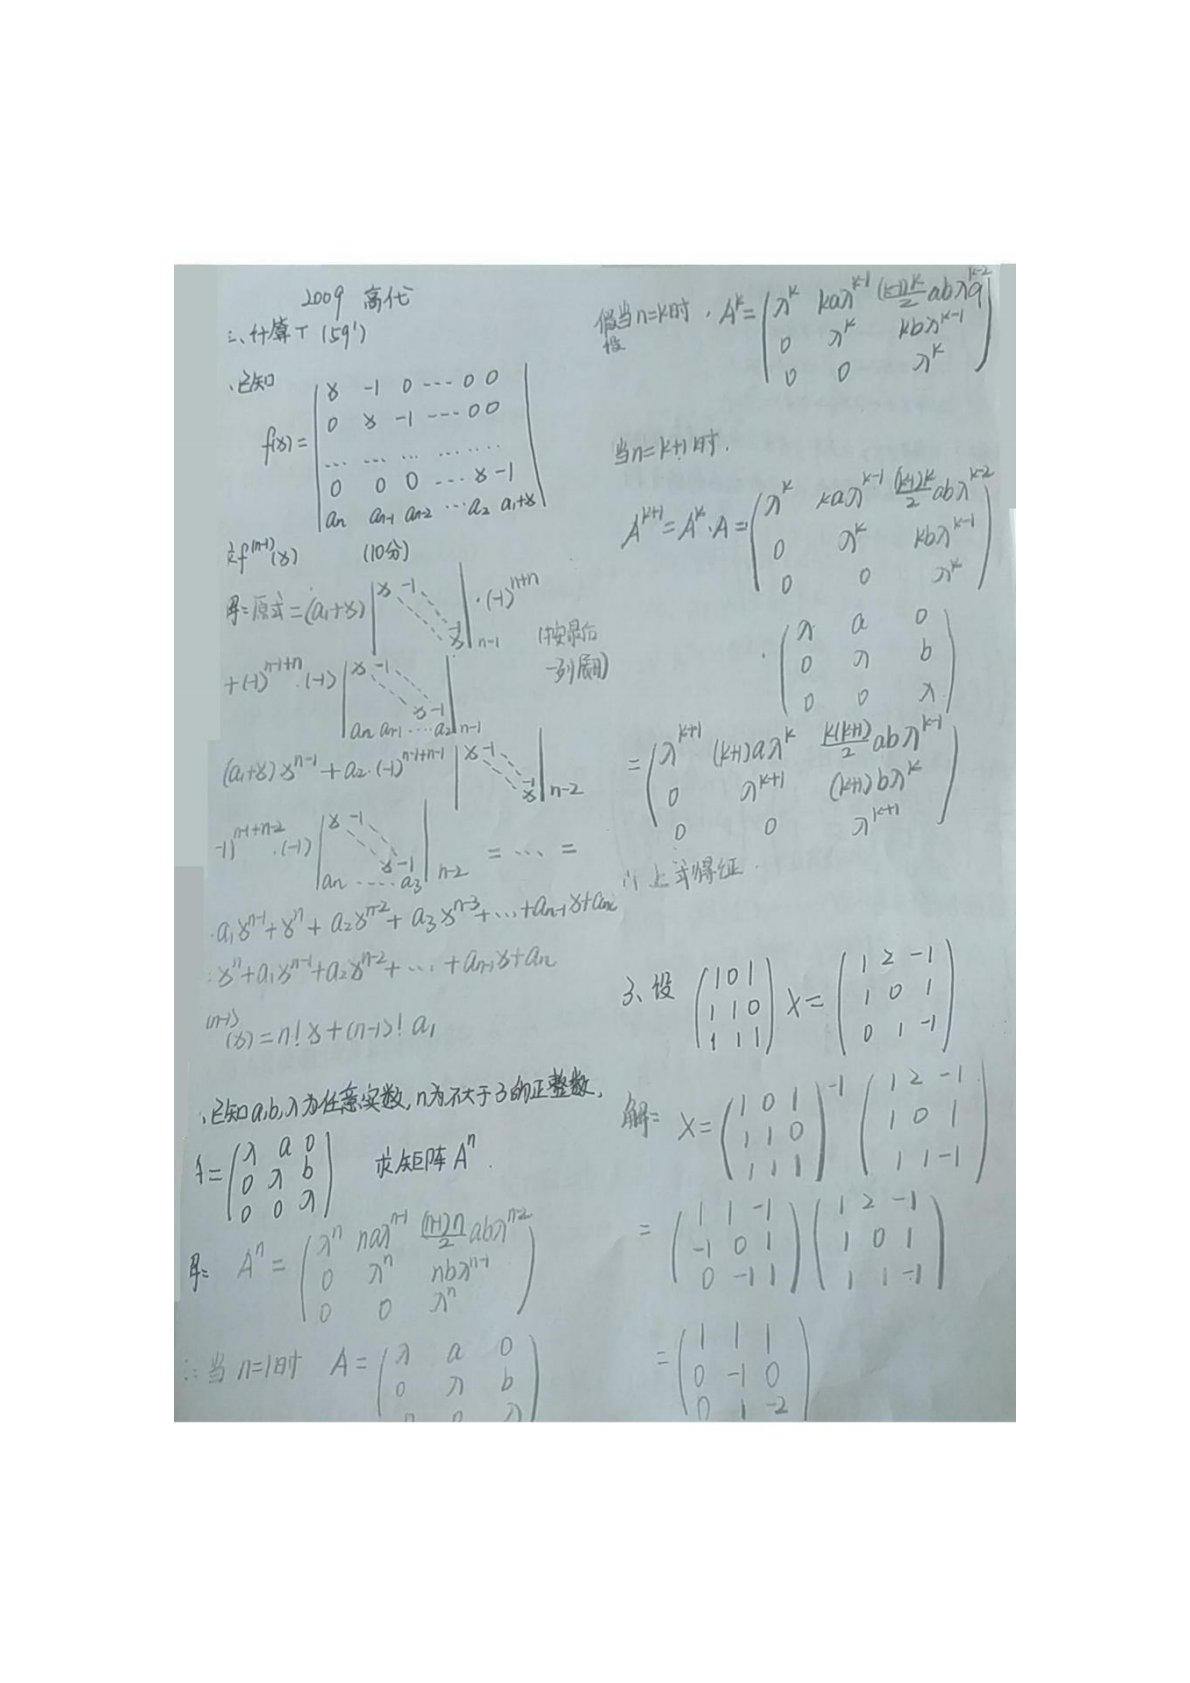 2009 高代
三、计算T (59')
、已知
f(x)= | x -1 0 ---- 0 0 |
| 0 x -1 ---- 0 0 |
| ... ... ... ... ... |
| 0 0 0 ---- x -1 |
| an an-1 an-2 ... a2 a1+x |
求f^(n-1)(x) (10分)
原式=(a1+x) | x -1 x -1 |n-1 ·(-1)^(n+n) (按最后
+(-1)^(n-1+n)·(-1) | x -1 x -1 an an-1 ... a2 |n-1 一列展开)
(a1+x)x^(n-1)+a2·(-1)^(n-1+n-1) | x -1 x -1 |n-2
-1)^(n-1+n-2)·(-1) | x -1 x -1 an ..... a3 |n-2 = ... =
a1x^(n-1)+x^n+a2x^(n-2)+a3x^(n-3)+...+an-1x+an
x^n+a1x^(n-1)+a2x^(n-2)+...+an-1x+an
^(n-1)(x)=n!x+(n-1)!a1
、已知a,b,λ为任意实数,n为不大于3的正整数,
A= ( λ a 0 )
( 0 λ b ) 求矩阵A^n.
( 0 0 λ )
A^n= ( λ^n naλ^(n-1) (n-1)n/2 abλ^(n-2) )
( 0 λ^n nbλ^(n-1) )
( 0 0 λ^n )
∵当n=1时 A= ( λ a 0 )
( 0 λ b )
( 0 0 λ )
假设当n=k时,A^k= ( λ^k kaλ^(k-1) (k-1)k/2 abλ^(k-2) )
( 0 λ^k kbλ^(k-1) )
( 0 0 λ^k )
当n=k+1时.
A^(k+1)=A^k·A= ( λ^k kaλ^(k-1) (k-1)k/2 abλ^(k-2) )
( 0 λ^k kbλ^(k-1) )
( 0 0 λ^k )
· ( λ a 0 )
( 0 λ b )
( 0 0 λ )
= ( λ^(k+1) (k+1)aλ^k k(k+1)/2 abλ^(k-1) )
( 0 λ^(k+1) (k+1)bλ^k )
( 0 0 λ^(k+1) )
∴上式得证.
3、设 ( 1 0 1 ) X= ( 1 2 -1 )
( 1 1 0 ) ( 1 0 1 )
( 1 1 1 ) ( 0 1 -1 )
解= X= ( 1 0 1 )^-1 ( 1 2 -1 )
( 1 1 0 ) ( 1 0 1 )
( 1 1 1 ) ( 1 1 -1 )
= ( 1 1 -1 ) ( 1 2 -1 )
( -1 0 1 ) ( 1 0 1 )
( 0 -1 1 ) ( 1 1 -1 )
= ( 1 1 1 )
( 0 -1 0 )
( 0 1 -2 )